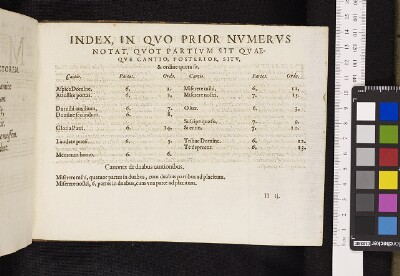 INDEX, IN QVO PRIOR NVMERVS
NOTAT, QVOT PARTIVM SIT QVAE-
QVE CANTIO, POSTERIOR, SITV,
& ordine quota sit.
Cantio. Partes. Ordo. Cantio. Partes. Ordo.
Aspice Domine. 6. Miserere mihi. 6. 12.
Attollite portas. 6. Miserere nostri. 7. 15.
Da mihi auxilium. 6. 7. O lux. 6. 3.
Domine secundum. 6. 8.
Suscipe quaeso. 7. 9.
Gloria Patri. 6. 14. Si enim. 7. 10.
Laudate pueri. 6. 5. Tribue Domine. 6. 12.
Te deprecor. 6. 13.
Memento homo. 6. 6.
Canones de duabus cantionibus.
Miserere mihi, quatuor partes in duabus, cum duabus partibus ad placitum.
Miserere nostri, 6. partes in duabus, cum vna parte ad placitum.